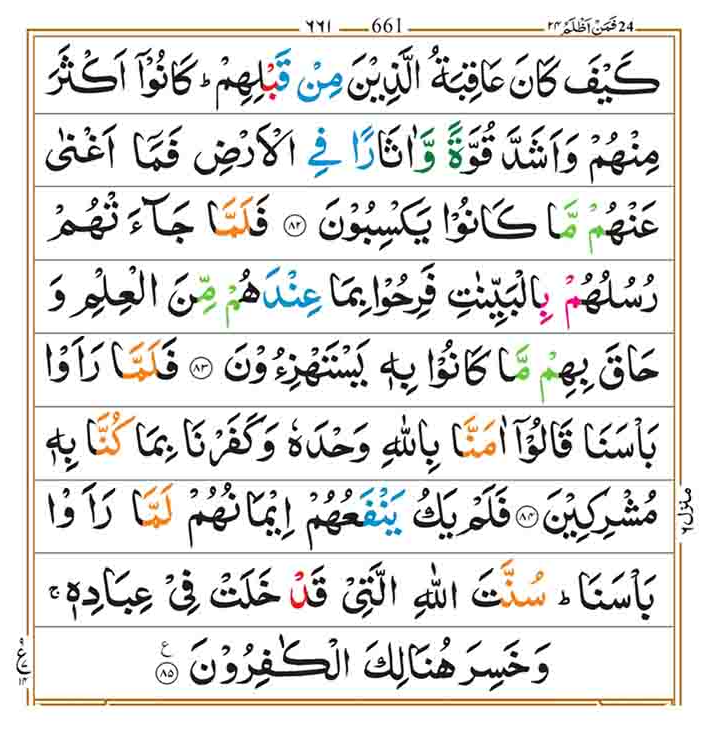 ٦٦١ 661 فَمَنْ اَظْلَمُ ٢٤ 24
كَيْفَ كَانَ عَاقِبَةُ الَّذِيْنَ مِنْ قَبْلِهِمْ ؕ كَانُوْۤا اَكْثَرَ
مِنْهُمْ وَاَشَدَّ قُوَّةً وَّاٰثَارًا فِي الْاَرْضِ فَمَاۤ اَغْنٰى
عَنْهُمْ مَّا كَانُوْا يَكْسِبُوْنَ ﴿٨٢﴾ فَلَمَّا جَآءَ تْهُمْ
رُسُلُهُمْ بِالْبَيِّنٰتِ فَرِحُوْا بِمَا عِنْدَهُمْ مِّنَ الْعِلْمِ وَ
حَاقَ بِهِمْ مَّا كَانُوْا بِهٖ يَسْتَهْزِءُوْنَ ﴿٨٣﴾ فَلَمَّا رَاَوْا
بَاْسَنَا قَالُوْۤا اٰمَنَّا بِاللّٰهِ وَحْدَهٗ وَكَفَرْنَا بِمَا كُنَّا بِهٖ
مُشْرِكِيْنَ ﴿٨٤﴾ فَلَمْ يَكُ يَنْفَعُهُمْ اِيْمَانُهُمْ لَمَّا رَاَوْا
منزل ٦
بَاْسَنَا ؕ سُنَّتَ اللّٰهِ الَّتِيْ قَدْ خَلَتْ فِيْ عِبَادِهٖ ۚ
وَخَسِرَ هُنَالِكَ الْكٰفِرُوْنَ ﴿٨٥﴾ ع